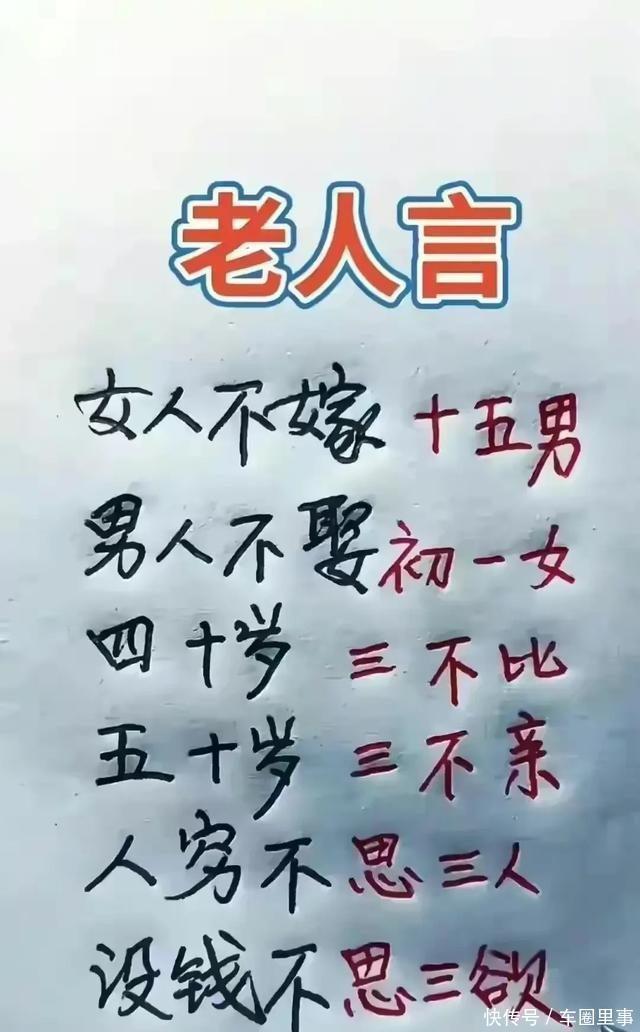 老人言
女人不嫁十五男
男人不娶初一女
四十岁三不比
五十岁三不亲
人穷不思三人
没钱不思三欲
快传号/车圈里事